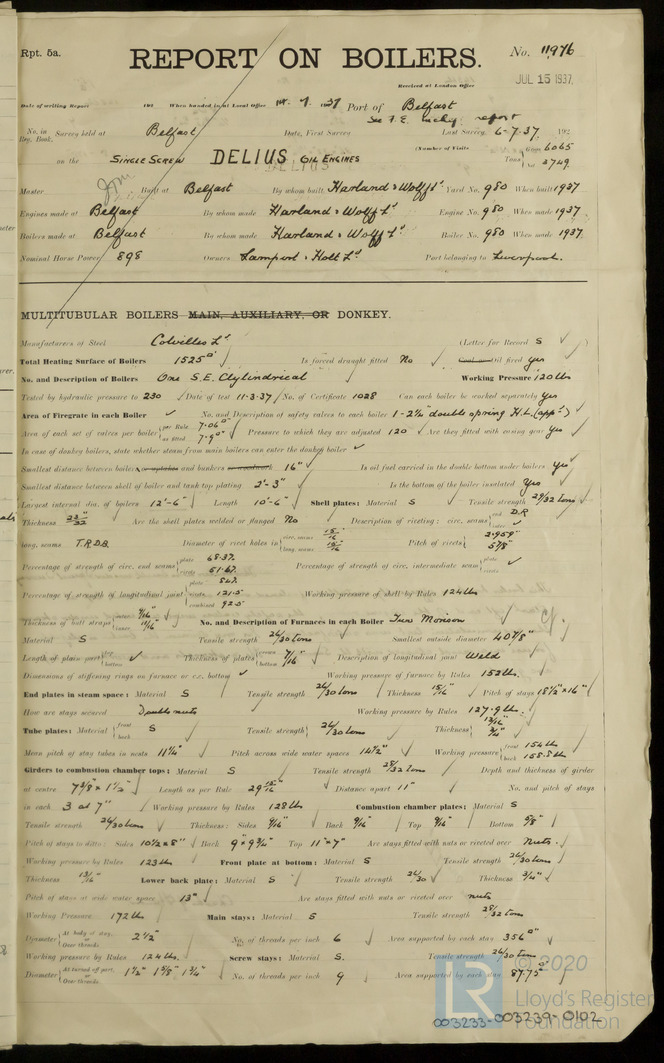 Rpt. 5a.
REPORT ON BOILERS.
No. 11976
Received at London Office
JUL 15 1937
Date of writing Report 192 When handed in at Local Office 1937 Port of Belfast
See F.E. Mchy report
No. in Reg. Book. Survey held at Belfast Date, First Survey Last Survey 6-7-37. 192
(Number of Visits
on the SINGLE SCREW DELIUS OIL ENGINES Tons Gross 6065 Net 3749
Master Built at Belfast By whom built Harland & Wolff Ld Yard No. 980 When built 1937
Engines made at Belfast By whom made Harland & Wolff Ld Engine No. 980 When made 1937
Boilers made at Belfast By whom made Harland & Wolff Ld Boiler No. 980 When made 1937
Nominal Horse Power 898 Owners Lamport & Holt Ld Port belonging to Liverpool.
MULTITUBULAR BOILERS MAIN, AUXILIARY, OR DONKEY.
Manufacturers of Steel Colvilles Ld (Letter for Record S )
Total Heating Surface of Boilers 1525 Is forced draught fitted No Coal and Oil fired yes
No. and Description of Boilers One S.E. Cylindrical Working Pressure 120 lbs
Tested by hydraulic pressure to 230 Date of test 11-3-37 No. of Certificate 1028 Can each boiler be worked separately yes
Area of Firegrate in each Boiler No. and Description of safety valves to each boiler 1 - 2¼" double spring H.L. (app'd)
Area of each set of valves per boiler per Rule 7.06 as fitted 7.9 Pressure to which they are adjusted 120 Are they fitted with easing gear yes
In case of donkey boilers, state whether steam from main boilers can enter the donkey boiler
Smallest distance between boilers or uptakes and bunkers or woodwork 16" Is oil fuel carried in the double bottom under boilers yes
Smallest distance between shell of boiler and tank top plating 2'-3" Is the bottom of the boiler insulated yes
Largest internal dia. of boilers 12'-6" Length 10'-6" Shell plates: Material S Tensile strength 29/32 tons
Thickness 23/32" Are the shell plates welded or flanged No Description of riveting: circ. seams end D.R. inter
long. seams T.R.D.B. Diameter of rivet holes in circ. seams 15/16" long. seams 15/16" Pitch of rivets 2.959" 5⅞"
Percentage of strength of circ. end seams plate 68.37 rivets 51.67 Percentage of strength of circ. intermediate seam plate rivets
Percentage of strength of longitudinal joint plate 84% rivets 121.5 combined 92.5 Working pressure of shell by Rules 124 lbs
Thickness of butt straps outer 9/16" inner 11/16" No. and Description of Furnaces in each Boiler Two Morison
Material S Tensile strength 26/30 tons Smallest outside diameter 40⅞"
Length of plain part top bottom Thickness of plates crown bottom 7/16" Description of longitudinal joint Weld
Dimensions of stiffening rings on furnace or c.c. bottom Working pressure of furnace by Rules 152 lbs.
End plates in steam space: Material S Tensile strength 26/30 tons Thickness 15/16" Pitch of stays 18½" × 16"
How are stays secured Double nuts Working pressure by Rules 127.9 lbs.
Tube plates: Material front back S Tensile strength 26/30 tons Thickness 13/16" ¾"
Mean pitch of stay tubes in nests 11¼" Pitch across wide water spaces 14½" Working pressure front 154 lbs back 158.5 lbs
Girders to combustion chamber tops: Material S Tensile strength 28/32 tons Depth and thickness of girder
at centre 7⅜" × 1½" Length as per Rule 29 15/16" Distance apart 11" No. and pitch of stays
in each 3 at 7" Working pressure by Rules 128 lbs Combustion chamber plates: Material S
Tensile strength 26/30 tons Thickness: Sides 9/16" Back 9/16" Top 9/16" Bottom ⅝"
Pitch of stays to ditto: Sides 10½" × 8" Back 9" × 9¾" Top 11" × 7" Are stays fitted with nuts or riveted over Nuts.
Working pressure by Rules 123 lbs Front plate at bottom: Material S Tensile strength 26/30 tons
Thickness 13/16" Lower back plate: Material S Tensile strength 26/30 Thickness ¾"
Pitch of stays at wide water space 13" Are stays fitted with nuts or riveted over nuts
Working Pressure 172 lbs Main stays: Material S Tensile strength 28/32 tons
Diameter At body of stay, or Over threads 2½" No. of threads per inch 6 Area supported by each stay 356
Working pressure by Rules 124 lbs. Screw stays: Material S. Tensile strength 26/30 tons
Diameter At turned off part, or Over threads 1½" 1⅝" 1¾" No. of threads per inch 9 Area supported by each stay 87.75
© 2020
LR
Lloyd's Register
Foundation
003233-003239-0102